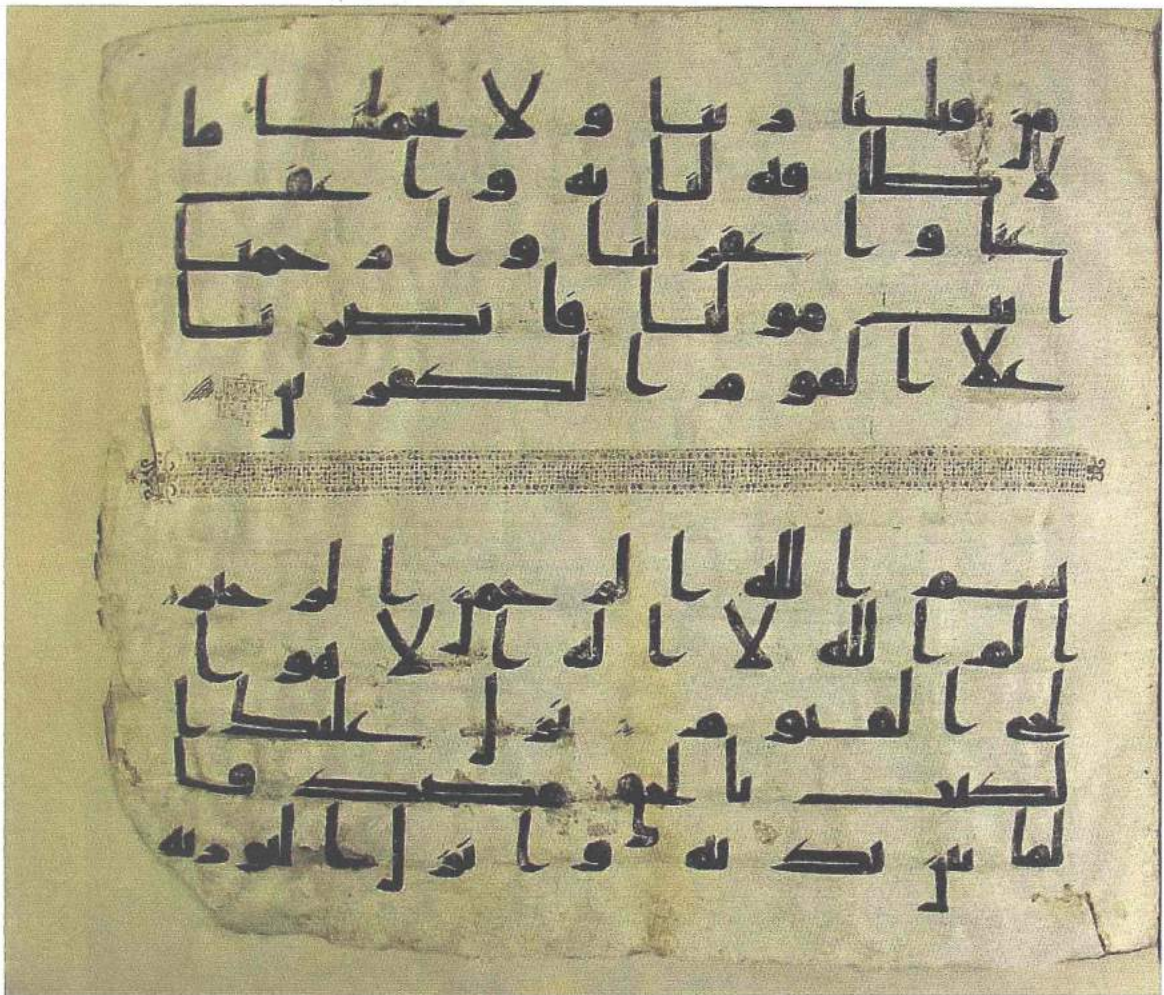 من قبلنا ربنا و لا تحملنا ما
لا طا قه لنا به و ا عف
عنا و ا غفر لنا و ا ر حمنا
ا نت مو لنا فا نصر نا
علا ا لقو م ا لكفر ين
بسم ا لله ا لر حمن ا لر حيم
ا لم ا لله لا ا له ا لا هو ا
لحي ا لقيو م نز ل عليك ا
لكتب با لحق مصد قا
لما بين يد يه و ا نز ل ا لتو ر يه